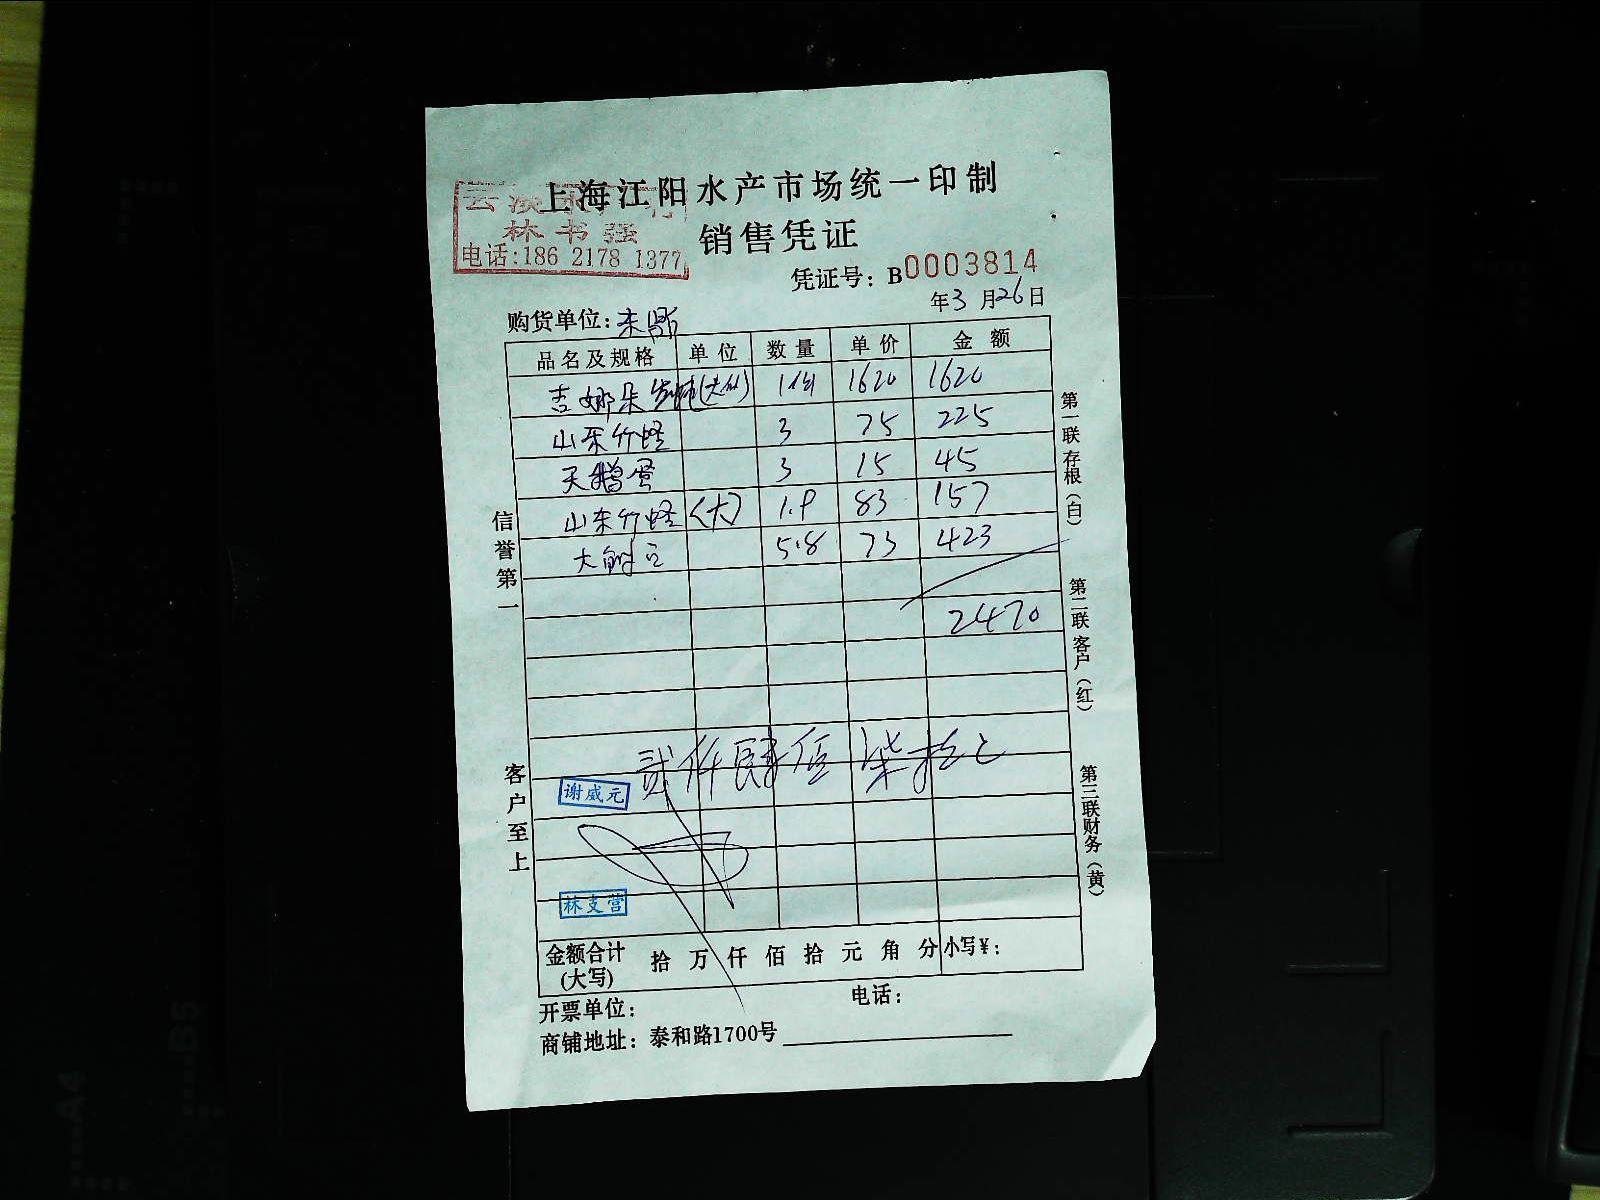 上海江阳水产市场统一印制
林书强
销售凭证
电话:186 2178 1377
凭证号: B0003814
年3月26日
购货单位:
品名及规格 单位 数量 单价 金额
1620 1620
山东竹蛏 3 75 225
天鹅蛋 3 15 45
山东竹蛏 (大) 1.9 83 157
大 5.8 73 423
2470
贰仟肆佰柒拾
谢威元
林支营
金额合计(大写) 拾 万 仟 佰 拾 元 角 分 小写¥:
开票单位: 电话:
商铺地址: 泰和路1700号
信誉第一
客户至上
第一联存根(白)
第二联客户(红)
第三联财务(黄)